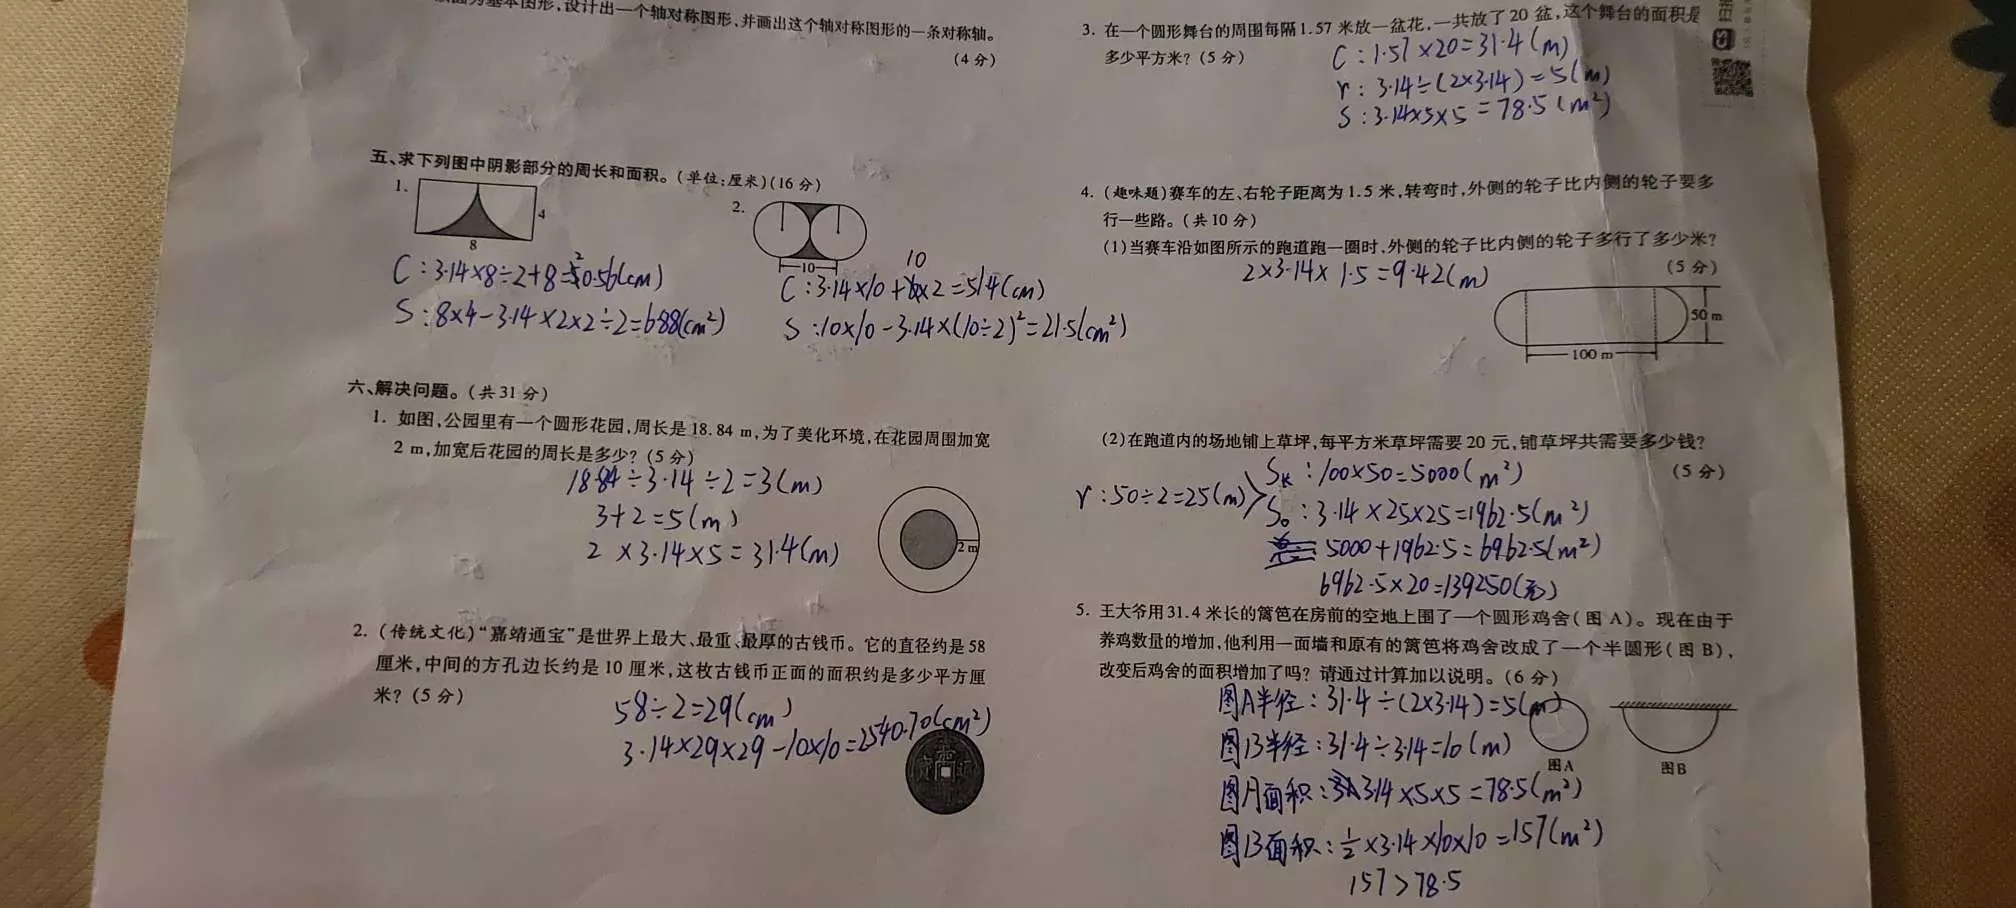 为基本图形,设计出一个轴对称图形,并画出这个轴对称图形的一条对称轴。
(4分)
五、求下列图中阴影部分的周长和面积。(单位:厘米)(16分)
1.
4
8
C:3.14×8÷2+8=20.56(cm)
S:8×4-3.14×2×2÷2=6.88(cm²)
2.
10
10
C:3.14×10+×2=51.4(cm)
S:10×10-3.14×(10÷2)²=21.5(cm²)
六、解决问题。(共31分)
1. 如图,公园里有一个圆形花园,周长是18.84 m,为了美化环境,在花园周围加宽
2 m,加宽后花园的周长是多少?(5分)
18.84÷3.14÷2=3(m)
3+2=5(m)
2×3.14×5=31.4(m)
2 m
2. (传统文化)“嘉靖通宝”是世界上最大、最重、最厚的古钱币。它的直径约是58
厘米,中间的方孔边长约是10厘米,这枚古钱币正面的面积约是多少平方厘
米?(5分)
58÷2=29(cm)
3.14×29×29-10×10=2540.70(cm²)
3. 在一个圆形舞台的周围每隔1.57米放一盆花,一共放了20盆,这个舞台的面积是
多少平方米?(5分)
C:1.57×20=31.4(m)
r:3.14÷(2×3.14)=5(m)
S:3.14×5×5=78.5(m²)
4. (趣味题)赛车的左、右轮子距离为1.5米,转弯时,外侧的轮子比内侧的轮子要多
行一些路。(共10分)
(1)当赛车沿如图所示的跑道跑一圈时,外侧的轮子比内侧的轮子多行了多少米?
(5分)
2×3.14×1.5=9.42(m)
50 m
100 m
(2)在跑道内的场地铺上草坪,每平方米草坪需要20元,铺草坪共需要多少钱?
(5分)
r:50÷2=25(m)
S长:100×50=5000(m²)
S。:3.14×25×25=1962.5(m²)
5000+1962.5=6962.5(m²)
6962.5×20=139250(元)
5. 王大爷用31.4米长的篱笆在房前的空地上围了一个圆形鸡舍(图A)。现在由于
养鸡数量的增加,他利用一面墙和原有的篱笆将鸡舍改成了一个半圆形(图B),
改变后鸡舍的面积增加了吗?请通过计算加以说明。(6分)
图A半径:31.4÷(2×3.14)=5(m)
图B半径:31.4÷3.14=10(m)
图A面积:3.14×5×5=78.5(m²)
图B面积:½×3.14×10×10=157(m²)
157>78.5
图A
图B